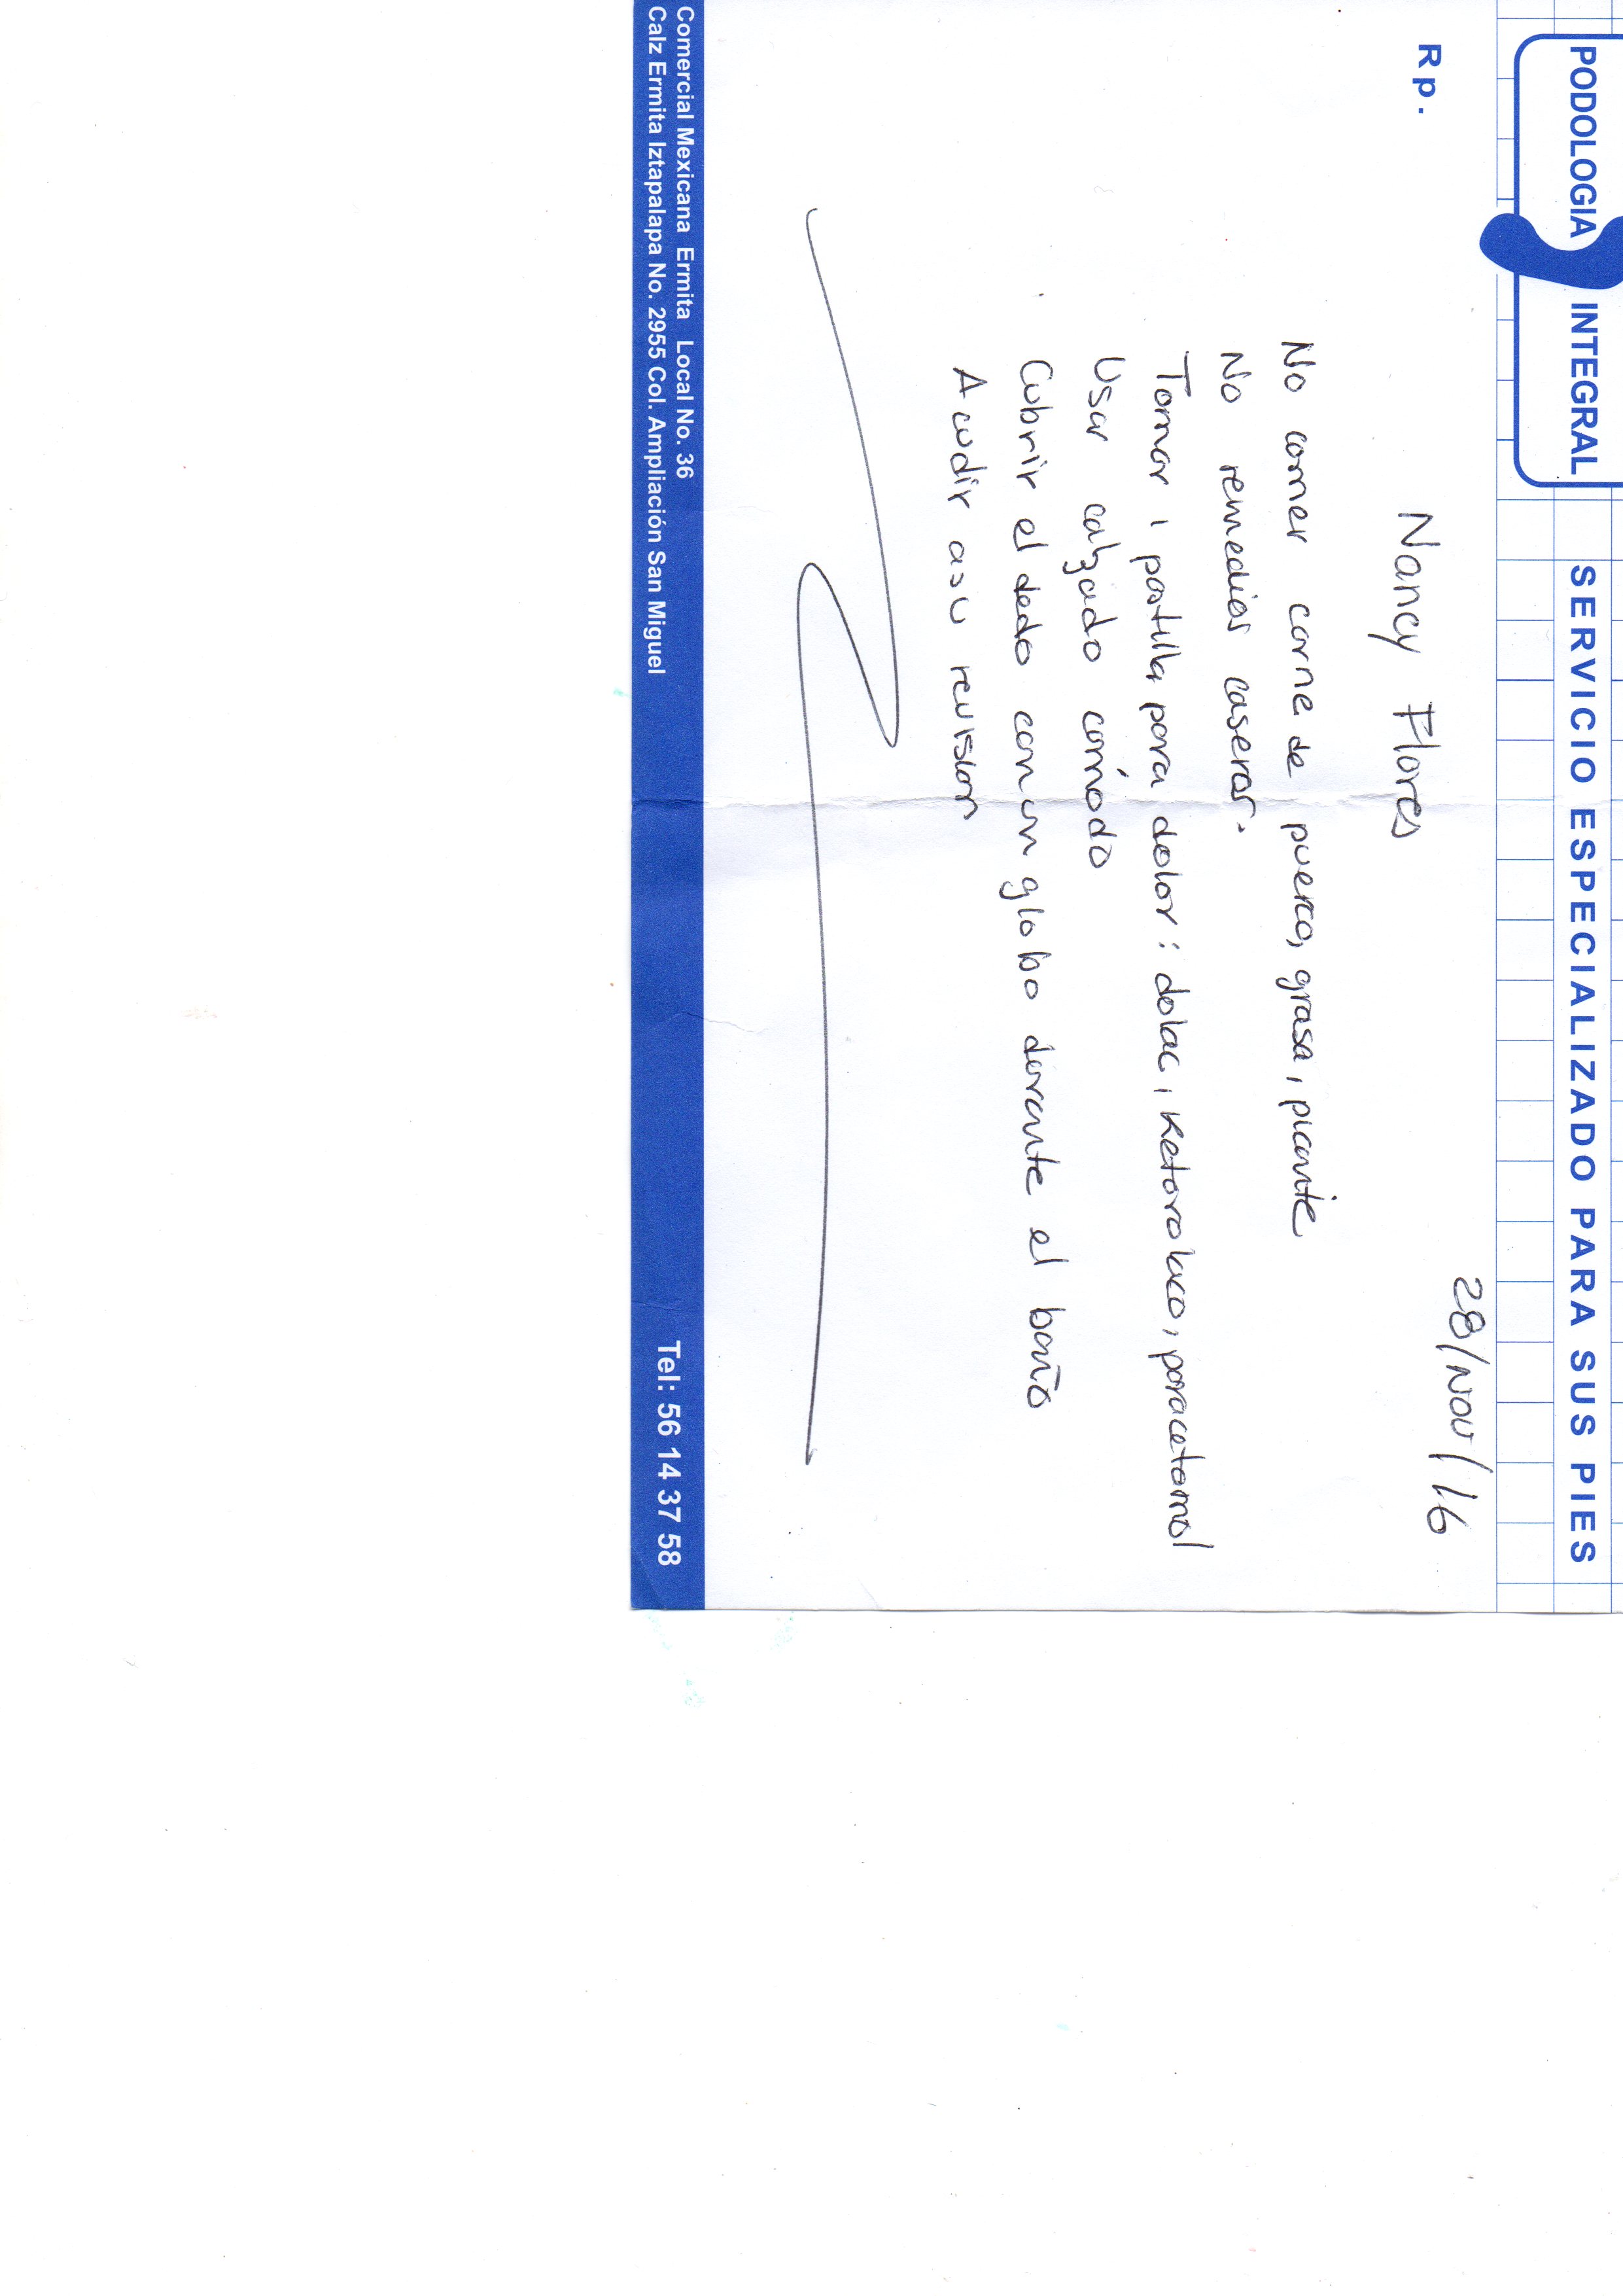 PODOLOGIA INTEGRAL
SERVICIO ESPECIALIZADO PARA SUS PIES
Rp.
28/Nov/16
Nancy Flores
No comer carne de puerco, grasa, picante
No remedios caseros.
Tomar 1 pastilla para dolor: dolac, Ketorolaco, paracetamol
Usar calzado comódo
Cubrir el dedo con un globo durante el baño
Acudir a su revision
Comercial Mexicana Ermita Local No. 36
Calz Ermita Iztapalapa No. 2955 Col. Ampliación San Miguel
Tel: 56 14 37 58